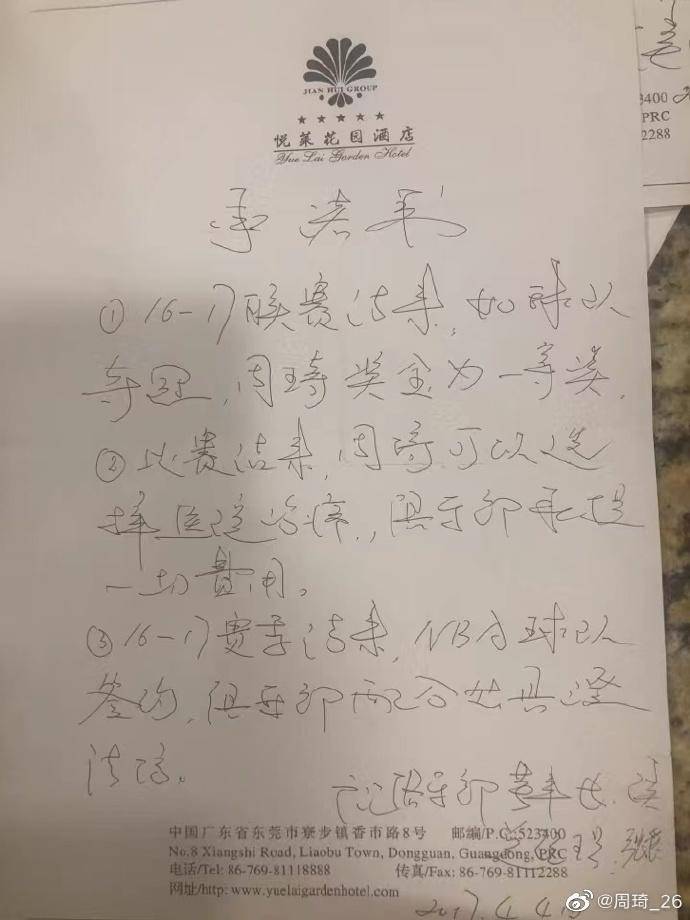 JIAN HUI GROUP
悦莱花园酒店
Yue Lai Garden Hotel
承诺书
① 16-17联赛结束,如球队
夺冠,周琦奖金为一等奖.
② 比赛结束,周琦可以选
择医院治疗.,俱乐部承担
一切费用。
③ 16-17赛季结束,NBA球队
签约,俱乐部配合出具澄
清信。
俱乐部
中国广东省东莞市寮步镇香市路8号 邮编/P.C:523400
No.8 Xiangshi Road, Liaobu Town, Dongguan, Guangdong, PRC
电话/Tel: 86-769-81118888 传真/Fax: 86-769-81112288
网址/http: www.yuelaigardenhotel.com
2017.4.4
3400
PRC
2288
@周琦_26